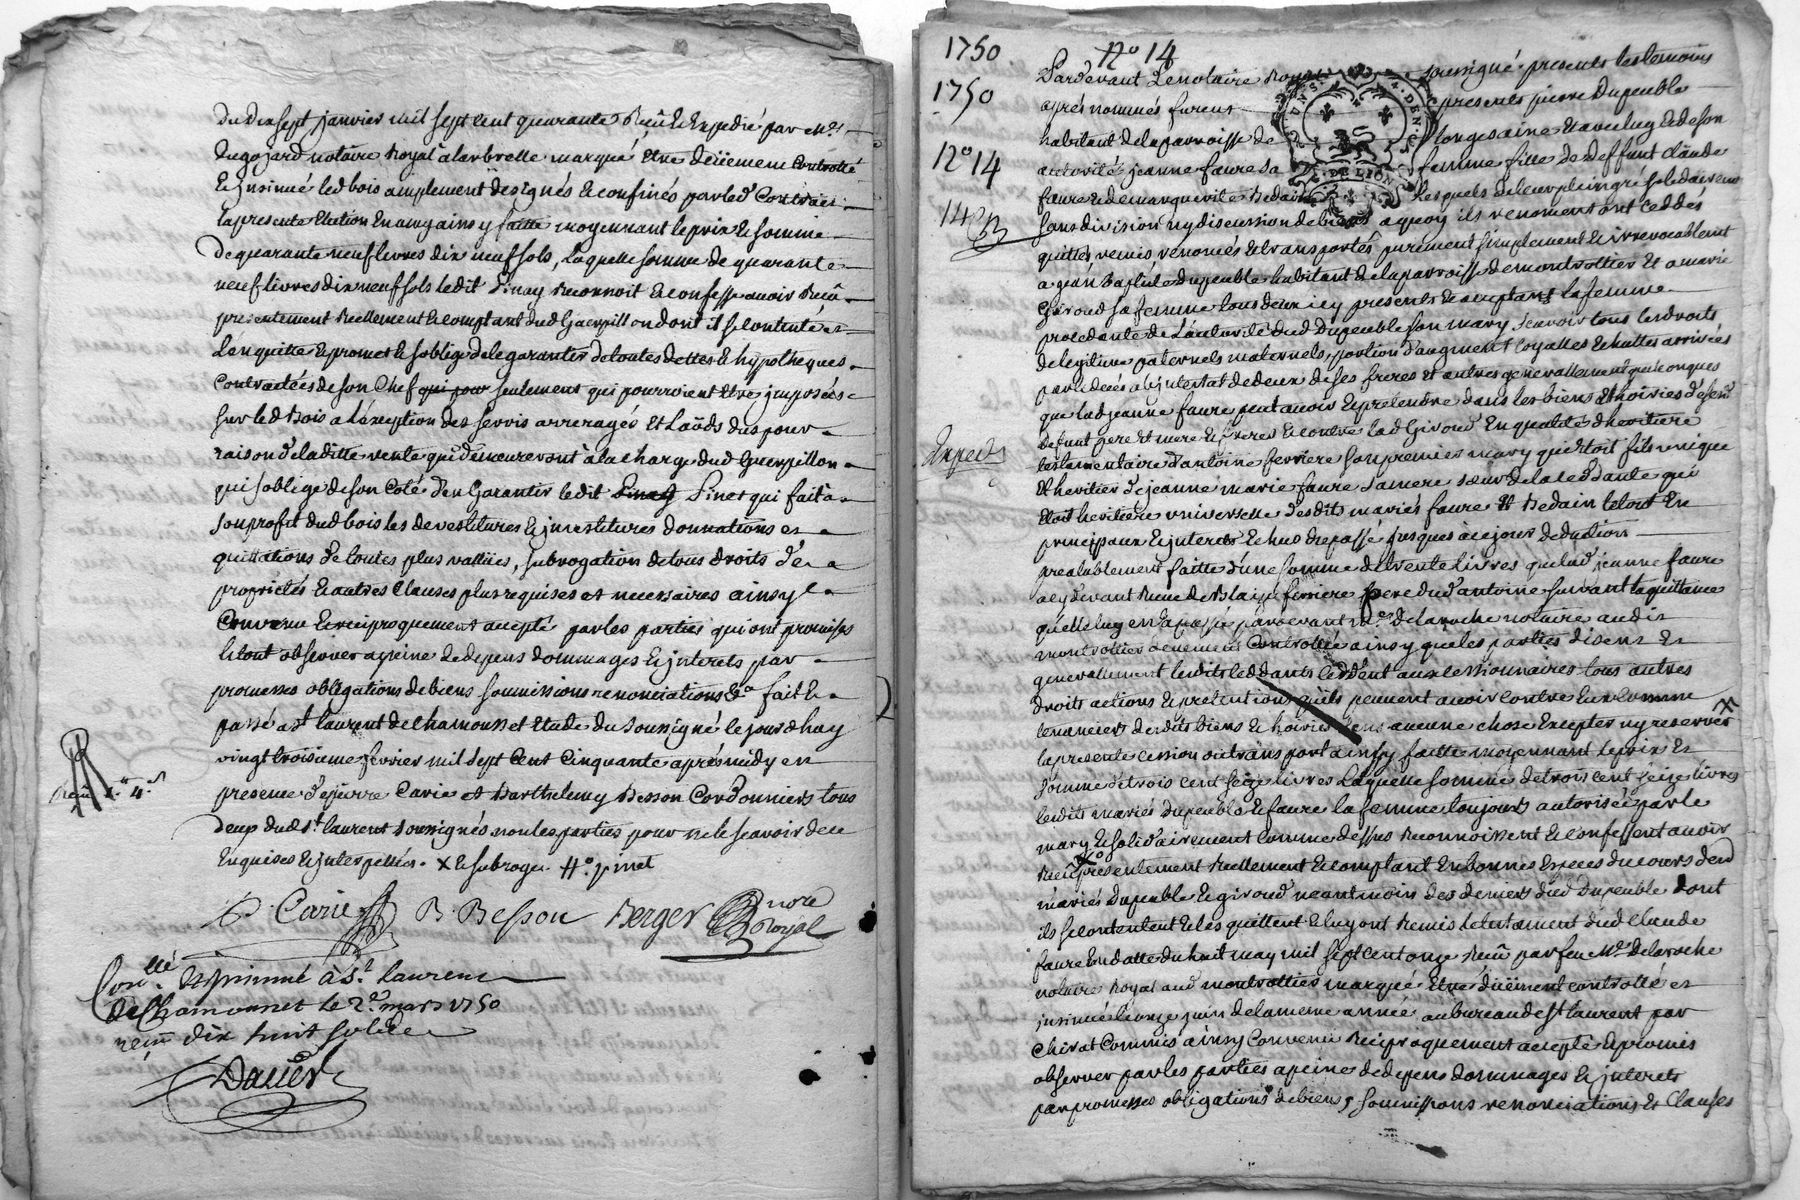 du dixsept janvier mil sept cent quarante Reçû & Expedié par Me.
Dugozard notaire Royal a larbrelle marqué Etre deüement Controllé
& jnsinué led bois amplement designés & confinés par led Contract
la presente Ettation Enuoy ainsy faitte moyennant le prix & somme
de quarante neuf livres dix neuf sols, laquelle somme de quarante
neuf livres dix neuf sols ledit Pinay Reconnoit & confesse avoir Reçû
presentement Reellement & comptant dud Guerpillon dont il se contente et
Len quitte & promet & soblige de le garantir de toutes dettes & hypotheques
contractées de son chef qui pour seulement qui pourroient Etre jmposées
sur led Bois a Léxeption des servis arreragés Et Laods dus pour
raison de laditte vente qui demeureront à la charge dud Guerpillon
qui soblige de son coté d'en Garantir ledit Pinay Pinet qui fait à
son profit dud bois les devestitures & jnvestitures donnations et
quittations de toutes plus vallües, subrogation de tous droits de
proprietés & autres Clauses plus requises et necessaires ainsy
Convenu & reciproquement accepté par les parties qui ont promises
le tout observer a peine de depens dommages & jnterets par
promesses obligations de biens soumissions renonciations &a fait &
passé a st laurent de chamousset Etude du soussigné le jour d'huy
vingt troisieme fevrier mil sept Cent Cinquante après midy en
presence de pierre Carie et Barthelemy Besson Cordonniers tous
deux dud st laurent soussignés non les parties pour ne le scavoir de ce
Enquises & jnterpellées. X & subroge H.o pinet
P. Carie B. Besson Berger nore
Royal
Conllé & jnsinué à st. laurent
de Chamousset le 2e. mars 1750
reçu dix huit sols
Daüer
1750
No 14
1750
No 14
Pardevant Le notaire Royal soussigné presents les temoins
après nommés furent presents pierre Dupeuble
habitant de la parroisse de Longesaine & avec luy & de son
autorité jeanne faure sa femme fille de deffunt claude
faure & de marguerite Bedain lesquels de leur plein gré solidairement
sans division ny discussion de biens a quoy ils renoncent ont ceddés
quittés remis renoncés & transportés purement simplement & irrevocablement
a jean Baptiste Dupeuble habitant de la parroisse de montrottier Et a marie
Giroud sa femme tous deux icy presents & acceptants la femme
procedante de Lautorité dud Dupeuble son mary scavoir tous les droits
de legitime paternels maternels, portion d'augment loyalles Echuttes arrivées
par le decés abjntestat de deux de ses freres et autres generallement quelconques
que lad jeanne faure peut avoir & pretendre dans les biens et hoiries desd
defunt pere et mere & freres & contre lad Giroud En qualité d'heritiere
Exped
testamentaire d'antoine ferriere son premier mary qui étoit fils unique
et heritier de jeanne marie faure sa mere sœur de la ceddante qui
Etoit heritiere universelle desdits mariés faure et Bedain le tout En
principaux & jnterets Echus du passé jusques a ce jour deduction
prealablement faitte d'une somme de trente livres que lad jeanne faure
a cydevant Receu de Blaize ferriere pere dud antoine suivant la quittance
quelle luy en a passée pardevant Me. Delaroche notaire audit
montrottier deuement Controllée ainsy que les parties disent Et
generallement lesdits ceddants ceddent aux cessionnaires tous autres
droits actions & pretentions qu'ils peuvent avoir contre Eux comme
tenanciers desdits biens & hoiries sens aucune chose Excepter ny reserver X
la presente cession ou transport ainsy faitte moyennant le prix Et
somme de trois cent seize livres Laquelle somme de trois cent seize livres
lesdits mariés Dupeuble & faure la femme toujours autorisée par le
mary & solidairement comme dessus reconnoissent & confessent avoir
Reçu X presentement Reellement & comptant En bonnes Especes du cours desd
mariés Dupeuble & giroud neantmoin des deniers dud Dupeuble dont
ils se contentent & les quittent & luy ont Remis le testament dud Claude
faure En datte du huit may mil sept cent onze Reçû par feu Me. Delaroche
notaire Royal aud montrottier marqué Etre düement controllé et
jnsinué le onze juin de la meme année au bureau de st laurent par
Chirat Commis ainsy Convenu Reciproquement accepté & promis
observer par les parties a peine de depens dommages & jnterets
par promesses obligations de biens, soumissions renonciations Et Clauses